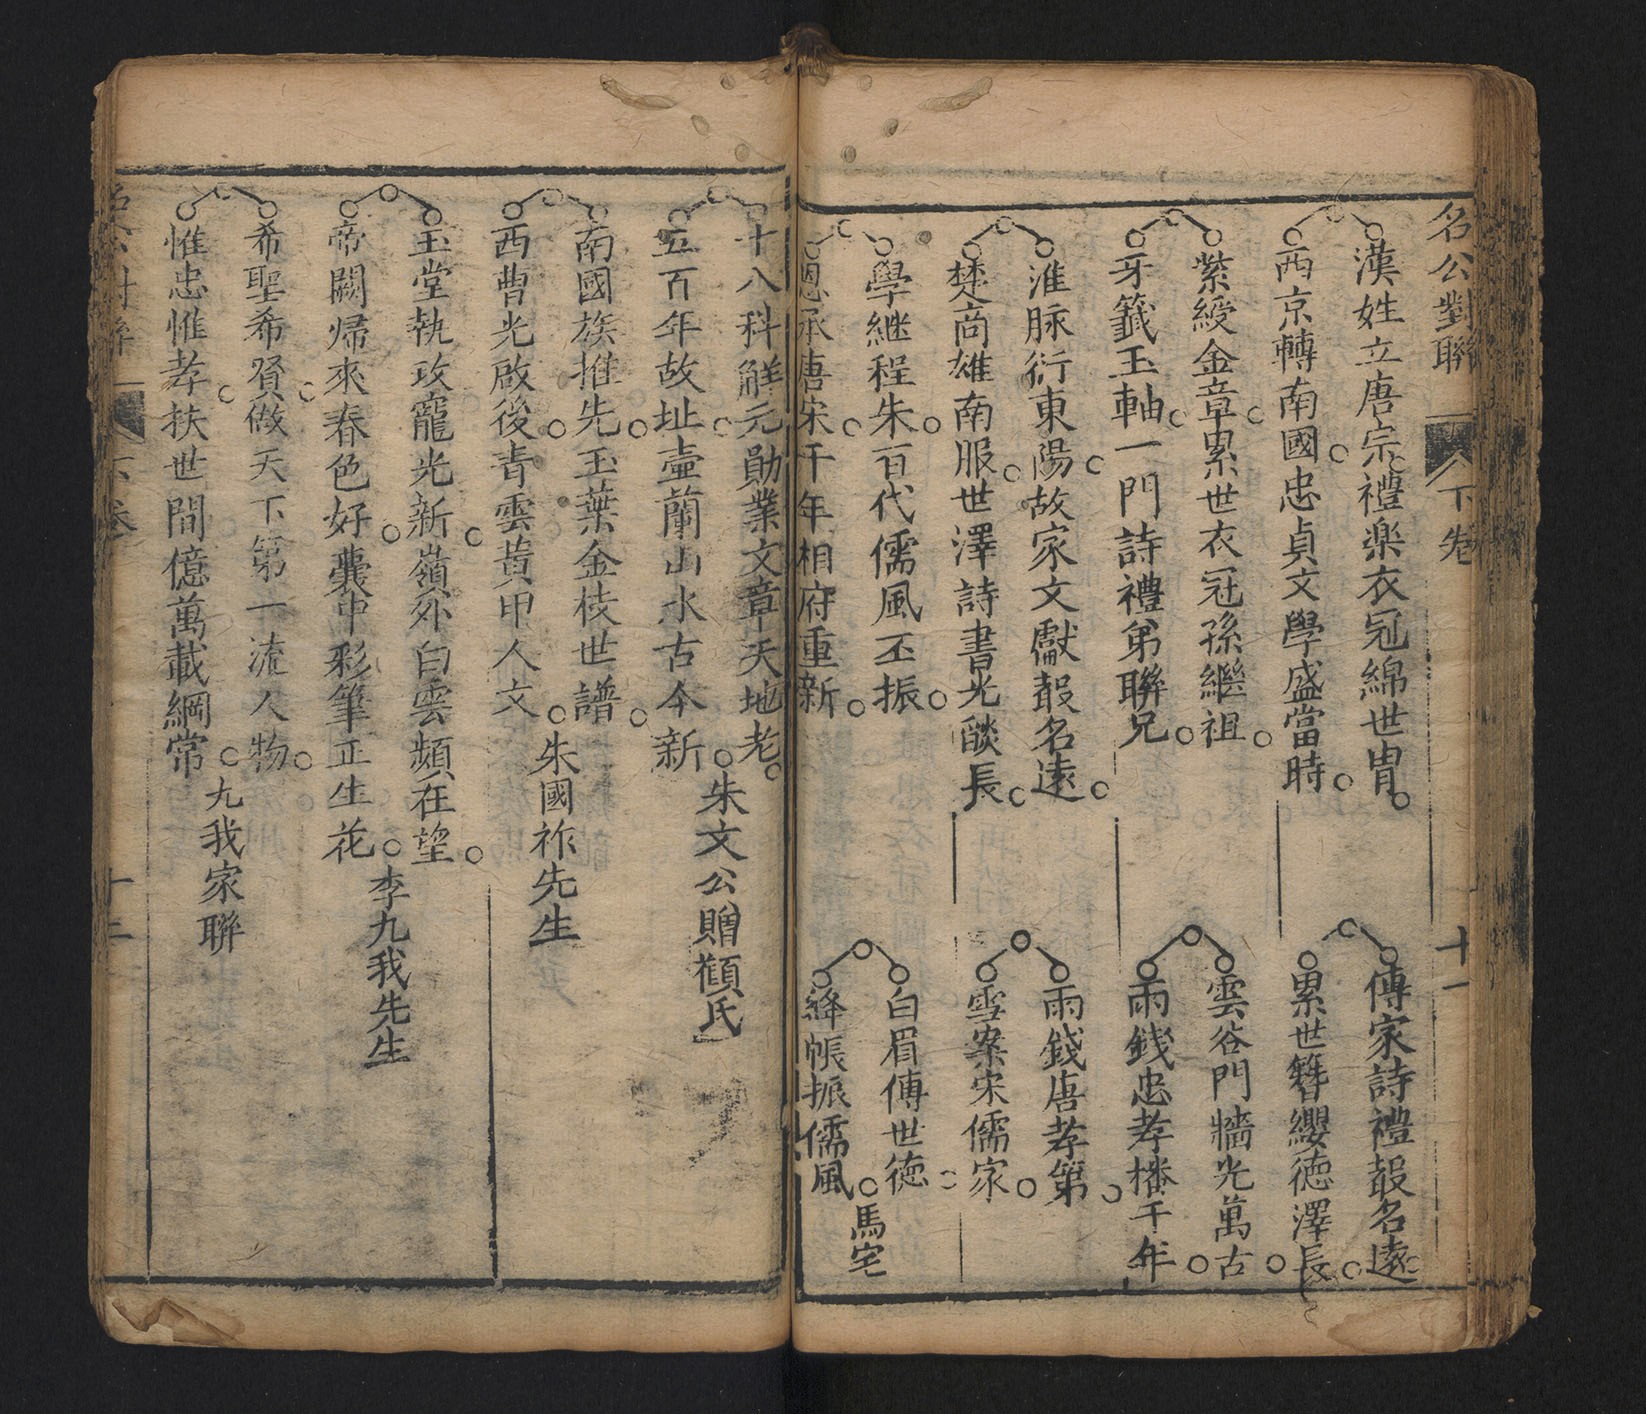 名公對聯 下卷 十一
漢姓立唐宗禮楽衣冠綿世冑
西京轉南國忠貞文學盛當時
傳家詩禮聲名遠
累世簪纓徳澤長
紫綬金章累世衣冠孫繼祖
牙籤玉軸一門詩禮弟聯兄
雲谷門牆光萬古
雨錢忠孝播千年
淮脉衍東陽故家文獻聲名遠
楚商雄南服世澤詩書光燄長
雨錢唐孝第
雪案宋儒家
學継程朱百代儒風丕振
恩承唐宋千年相府重新
白眉傳世徳
絳帳振儒風
馬宅
十八科解元勛業文章天地老
五百年故址壷蘭山水古今新
朱文公贈顏氏
南國族推先玉葉金枝世譜
西曹光啟後青雲黃甲人文
朱國祚先生
玉堂執政寵光新嶺外白雲頻在望
帝闕歸來春色好囊中彩筆正生花
李九我先生
希聖希賢做天下第一流人物
惟忠惟孝扶世間億萬載綱常
九我家聯
下卷 十二